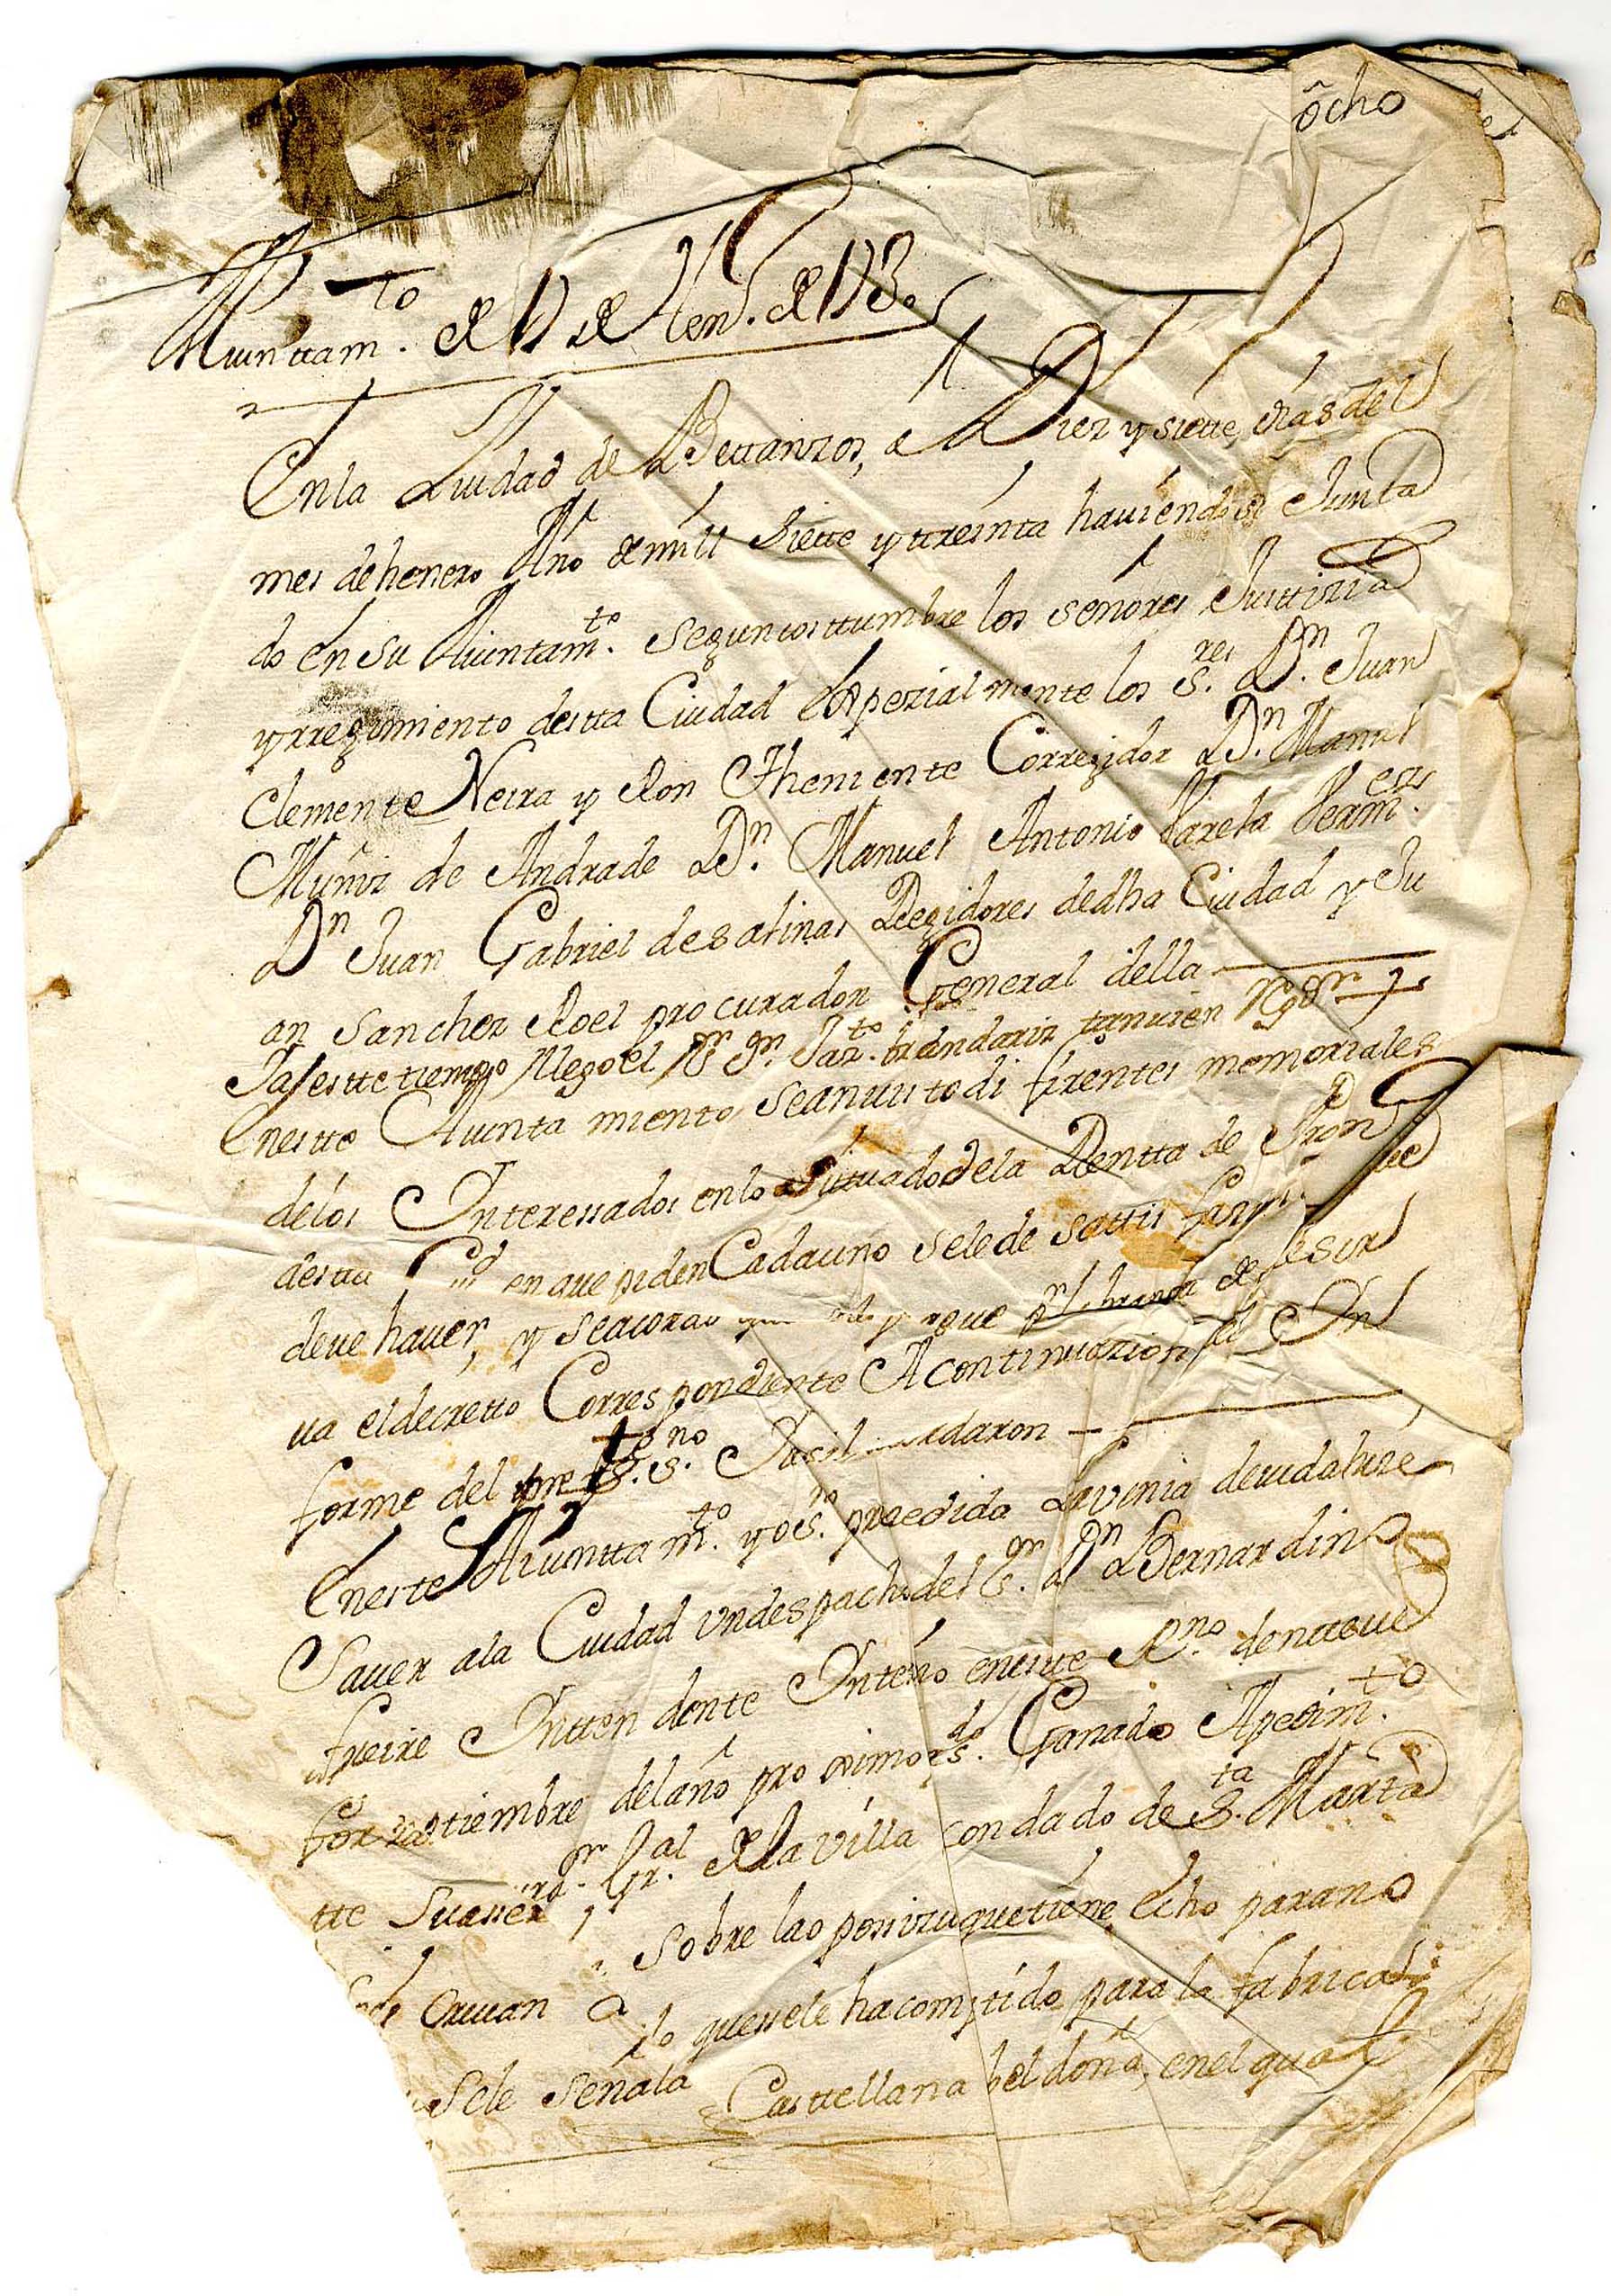 ocho
Aiunttamto. de 17 de Hen.º de 1730
En la Ciudad de Bettanzos, a Diez y siette dias del
mes de henero Año de mill siette y ttreinta haviendose Junta
do en su Aiuntamto. segun costtumbre los señores Justtizia
y rregimiento destta Ciudad Expezialmente los s.res Dn. Juan
Clemente Neira y Ron Theniente Corregidor Dn. Manuel
Muñiz de Andrade Dn. Manuel Antonio Varela Veam.
Dn Juan Gabriel de salinas Regidores de dha Ciudad y Ju
an Sanchez Roel procurador General della
Ja estte tiempo llego el sr Dn. Jazto. brandariz tanvien Rgdr
En estte Aiuntamiento se an visto difirentes memoriales
de los Interessados en lo Situado de la Rentta de
destta en que piden Cadauno se le de sattisfazn. de
deve haver, y se acordo que se les pague pr libranza de
va el decretto Correspondiente A continuazion del In
forme del pressте s.no Y asi acordaron
En este Aiunttamto. yo s.no precedida La venia devida hize
Saver a la Ciudad Vn despacho del sr. Dn Bernardino
freire Intten dente Interino en estte Rno. de nueve
settiembre del año proximo ps.do Ganado A pedimto.
tte Suarez pr. Gral. de la Villa condado de Sta. Marta
sobre la oposizn que tiene echo para no
Se le señala lo que se le ha comptido para la fabrica de
Casttellana bel doña, en el qual